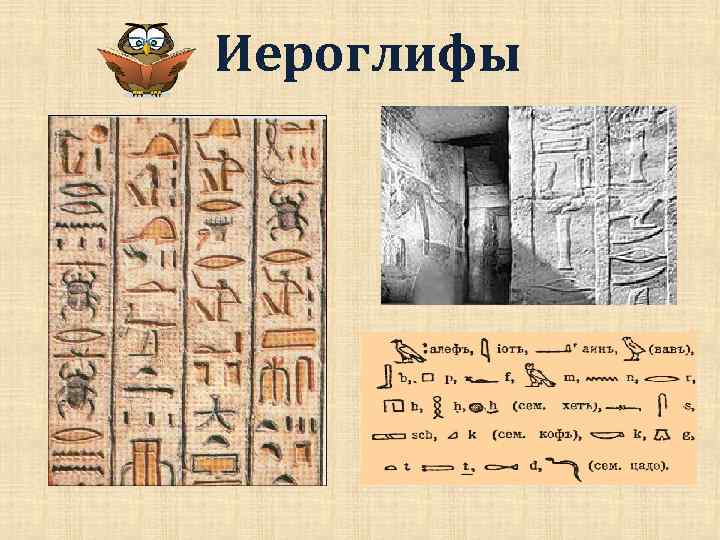 Иероглифы
:алефъ, іотъ, аинъ, (вавъ),
b, p, f, m, n, r,
h, ḥ, h (сем. хетъ), s,
sch, k (сем. кофъ), k, g,
t t, d, (сем. цаде).